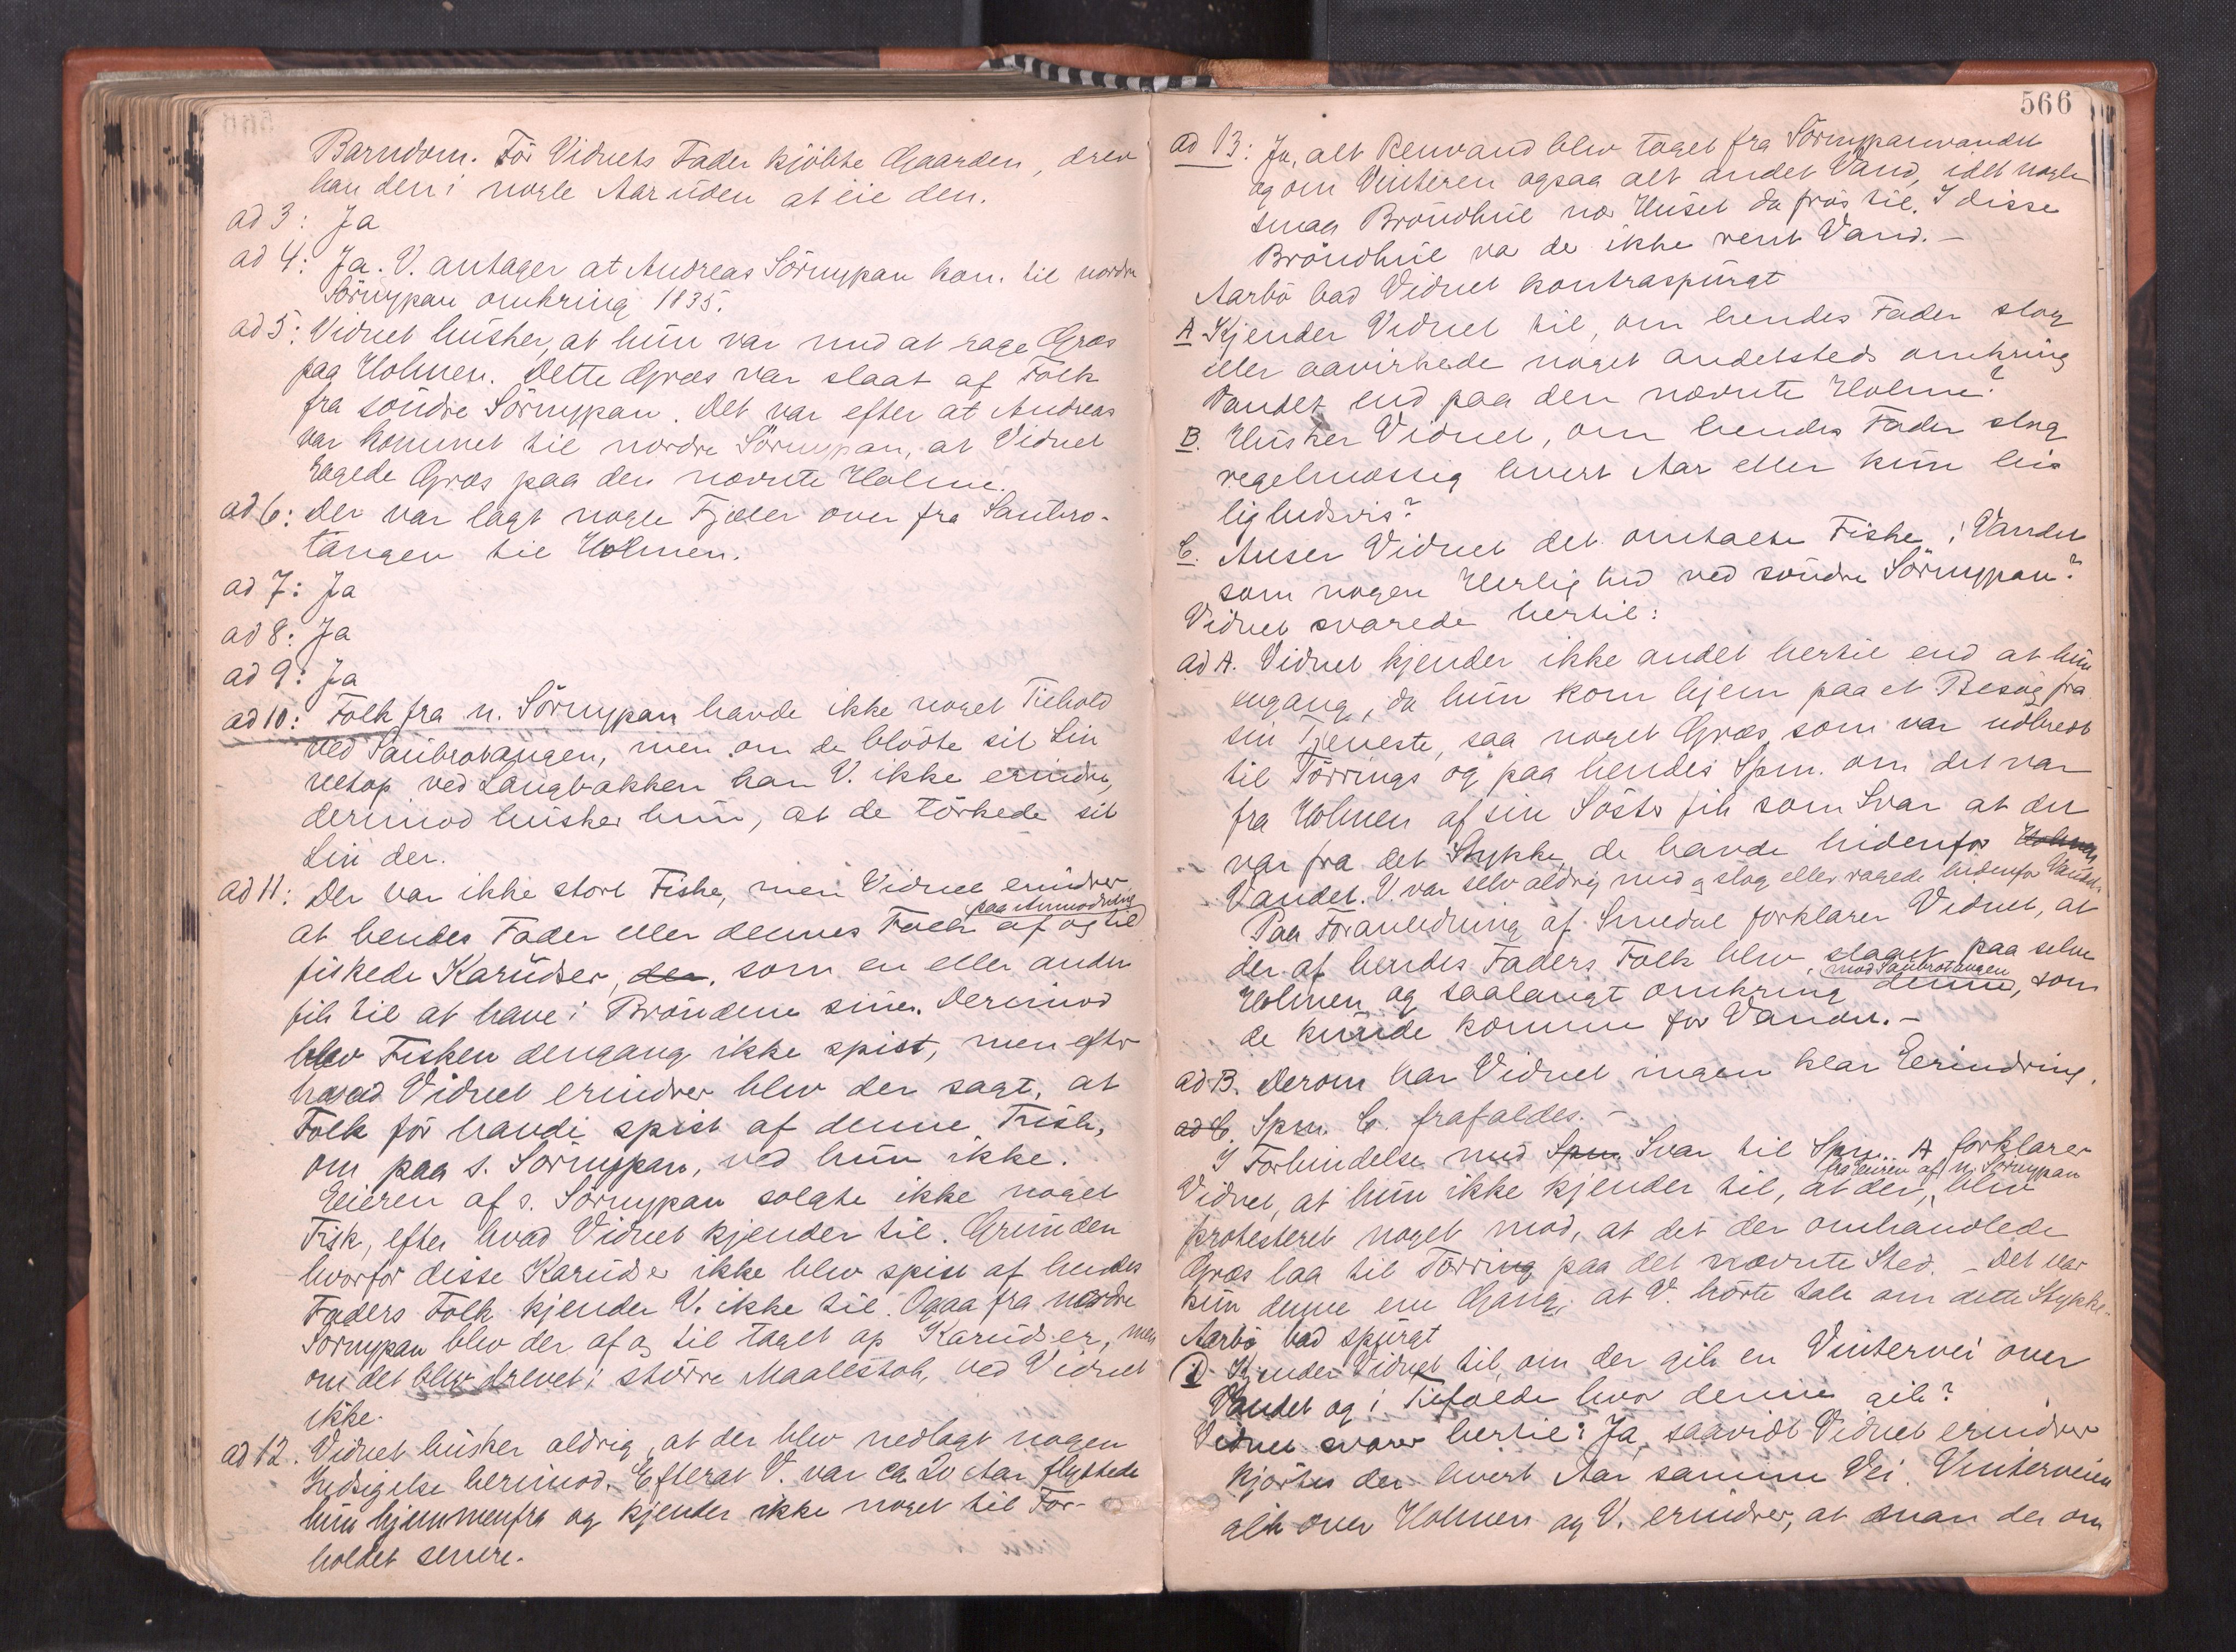 Barndom. För Vidnets Fader kjöbte Gaarden, drev
han den i nogle Aar uden at eie den.
ad 3: Ja
ad 4: Ja. V. antager at Andreas Sörnypan kom til nordre
Sörnypan omkring 1835.
ad 5: Vidnet husker, at hun var med at rage Græs
paa Holmen. Dette Græs var slaat af Folk
fra söndre Sörnypan. Det var efter at Andreas
var kommet til nordre Sörnypan, at Vidnet
ragede Græs paa den nævnte Holme.
ad 6: Der var lagt nogle Fjæler over fra Saubro-
tangen til Holmen.
ad 7: Ja
ad 8: Ja
ad 9: Ja
ad 10: Folk fra n. Sörnypan havde ikke noget Tilhold
ved Saubrotangen, men om de blödte sit Lin
netop ved Langbakken kan V. ikke erindre,
derimod husker hun, at de törkede sit
Lin der.
ad 11: Der var ikke stort Fiske, men Vidnet erindrer
paa Anmodning
at hendes Fader eller dennes Folk af og til
fiskede Karudser, der, som en eller anden
fik til at have i Bröndene sine. Derimod
blev Fisken dengang ikke spist, men efter
hvad Vidnet erindrer blev der sagt, at
Folk för havde spist af denne Fisk,
om paa s. Sörnypan, ved hun ikke.
Eieren af s. Sörnypan solgte ikke noget
Fisk, efter hvad Vidnet kjender til. Grunden
hvorfor disse Karudser ikke blev spist af hendes
Faders Folk kjender V. ikke til. Ogaa fra nordre
Sörnypan blev der af og til taget op Karudser, men
om det blev drevet i större Maalestok, ved Vidnet
ikke.
ad 12. Vidnet husker aldrig, at der blev nedlagt nogen
Indsigelse herimod. Efterat V. var ca 20 Aar flyttede
hun hjemmenfra og kjender ikke noget til For-
holdet senere.
566
ad 13: Ja, alt Renvand blev taget fra Sörnypanvandet
og om Vinteren ogsaa alt andet Vand, idet nogle
smaa Bröndhul nær Huset da frös til. I disse
Bröndhul va de ikke rent Vand. –
Aarbö bad Vidnet kontraspurgt
A Kjender Vidnet til, om hendes Fader slog
eller aavirkede noget andetsteds omkring
Vandet end paa den nævnte Holme?
B. Husker Vidnet, om hendes Fader slog
regelmæssig hvert Aar eller kun lei
lighedsvis?
C. Anser Vidnet det omtalte Fiske i Vandet
som nogen Herlighed ved söndre Sörnypan?
Vidnet svarede hertil:
ad A. Vidnet kjender ikke andet hertil end at hun
engang, da hun kom hjem paa et Besög fra
sin Tjeneste, saa noget Græs, som var udbredt
til Törrings og paa hendes Spm. om det var
fra Holmen af sin Söster fik som Svar at det
var fra det Stykke, de havde hidenfor Holmen
Vandet. V. var selv aldrig med og slog eller ragede hidenfor Vandet.
Paa Foranledning af Smedal forklarer Vidnet, at
der af hendes Faders Folk blev slaaet paa selve
mod Saubrotangen
Holmen og saalangt omkring denne, som
de kunde komme for Vandet. –
ad B. Derom har Vidnet ingen klar Erindring.
ad C. Spm. C. frafaldes. –
I Forbindelse med Spm. Svar til Spm. A forklarer
fra Eieren af n. Sörnypan
Vidnet, at hun ikke kjender til, at der blev
protesteret noget mod, at det der omhandlede
Græs laa til Törring paa det nævnte Sted. – Det var
kun denne ene Gang, at V. hörte tale om dette Stykke.
Aarbö bad spurgt
D Kjender Vidnet til, om der gik en Vintervei over
Vandet og i Tilfælde hvor denne gik?
Vidnet svarer hertil: Ja, saavidt Vidnet erindrer
kjörtes der hvert Aar samme Vei. Vinterveien
gik over Holmen og V. erindrer, at man der om